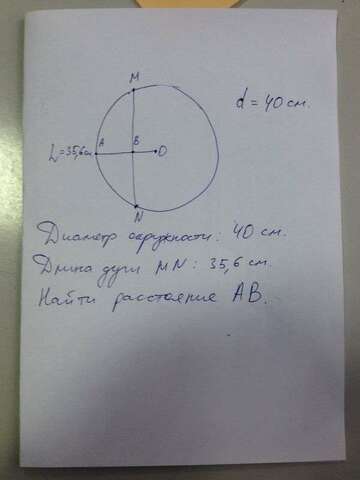 M
d = 40 см.
L=35,6 см
A
B
O
N
Диаметр окружности: 40 см.
Длина дуги MN: 35,6 см.
Найти расстояние AB.